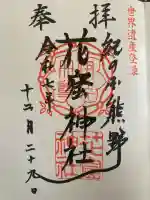 世界遺産登録
奉拝
紀の国熊野
花窟神社
令和七年
十二月二十九日